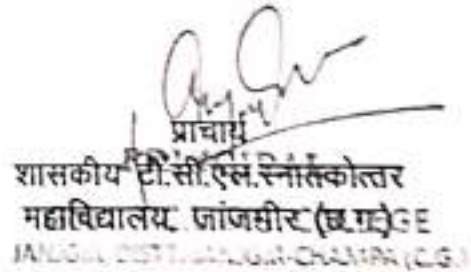 प्राचार्य
शासकीय टी.सी.एल.स्नातकोत्तर
महाविद्यालय जांजगीर (छ.ग.)GE
JANJGIR DISTT. JANJGIR-CHAMPA (C.G.)